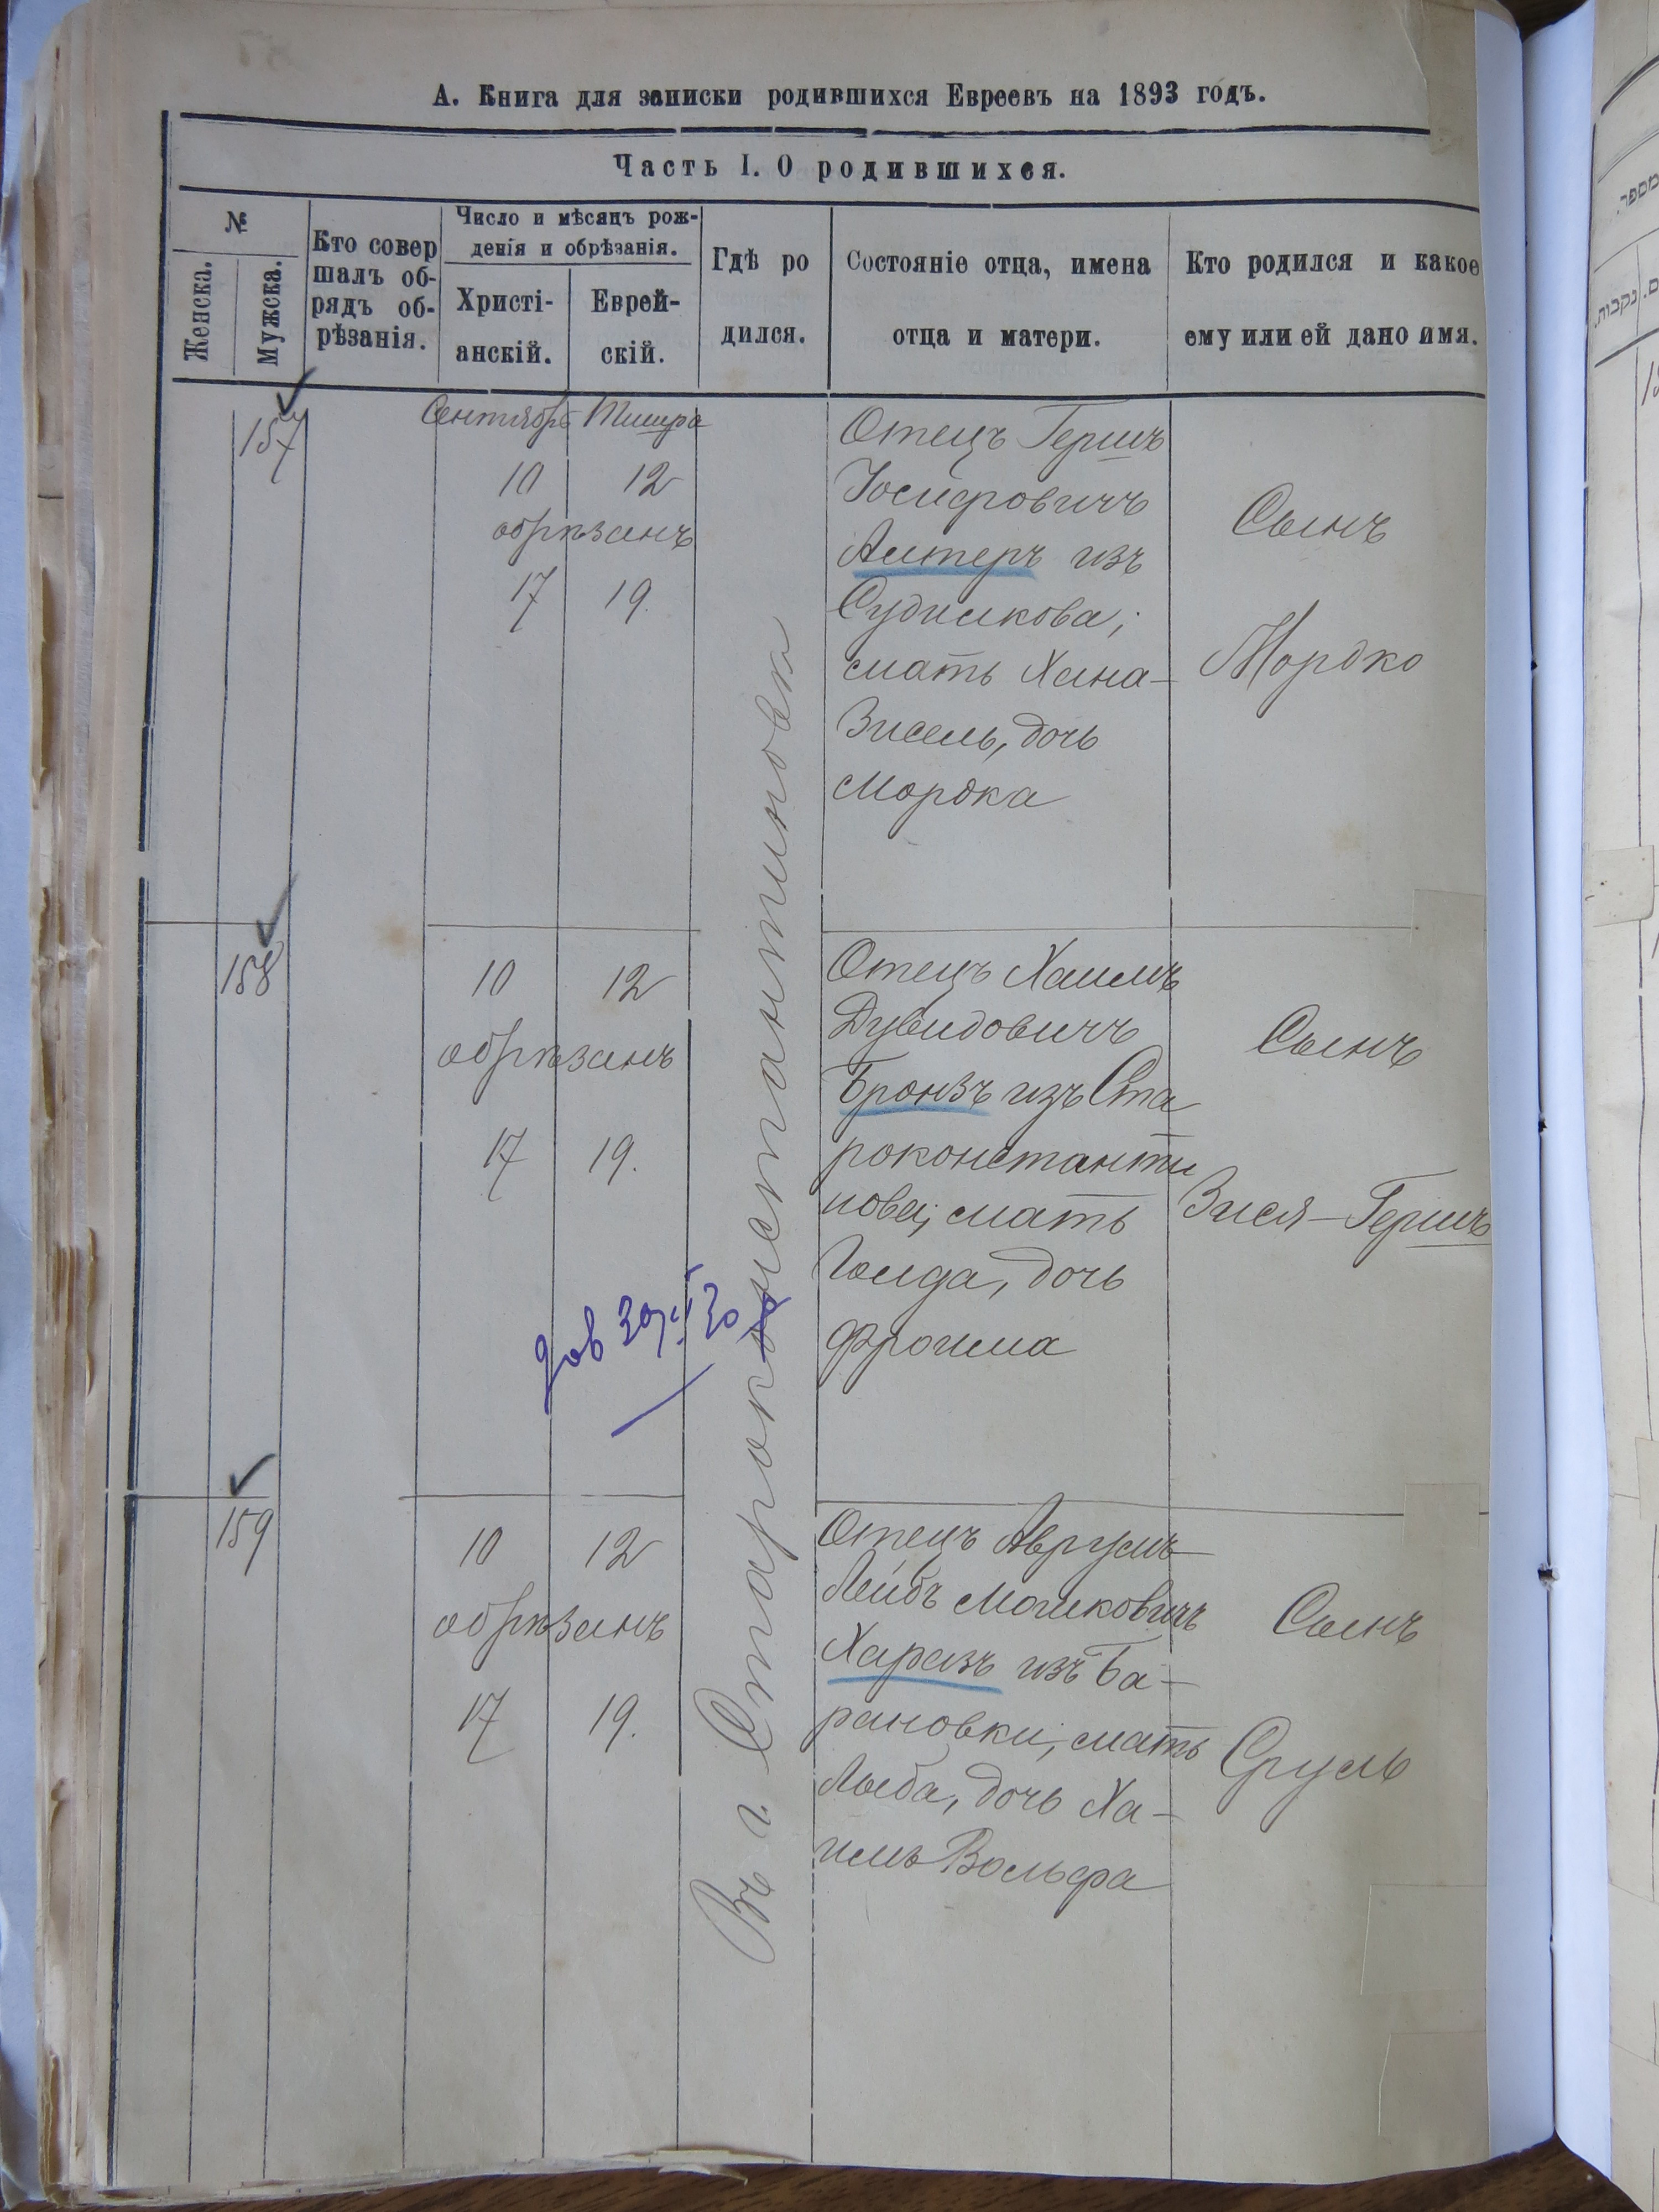 А. Книга для записки родившихся Евреевъ на 1893 годъ.
Часть I. О родившихся.
№
Женска.
Мужска.
Кто совер
шалъ об-
рядъ об-
рѣзанія.
Число и мѣсяцъ рож-
денія и обрѣзанія.
Христі-
анскій.
Еврей-
скій.
Гдѣ ро
дился.
Состояніе отца, имена
отца и матери.
Кто родился и какое
ему или ей дано имя.
157
Сентябрь Тишра
10 12
обрѣзанъ
17 19.
Отецъ Гершъ
Іосифовичъ
из
Судилкова;
мать Хана-
Зисель, дочь
Мордка
Сынъ
Мордко
158
10 12
обрѣзанъ
17 19.
Отецъ Хаимъ
Дувидовичъ
Бронзъ изъ Ста
роконстанти
нова; мать
Голда, дочь
Фроима
Сынъ
Зися-Гершъ
159
10 12
обрѣзанъ
17 19.
Отецъ Аврумъ-
Лейбъ Мошковичъ
Харазъ изъ Ба-
рановки, мать
Люба, дочь Ха-
имъ Вольфа
Сынъ
Сруль
Въ г. Староконстантиновѣ
מספר.
נקבות.